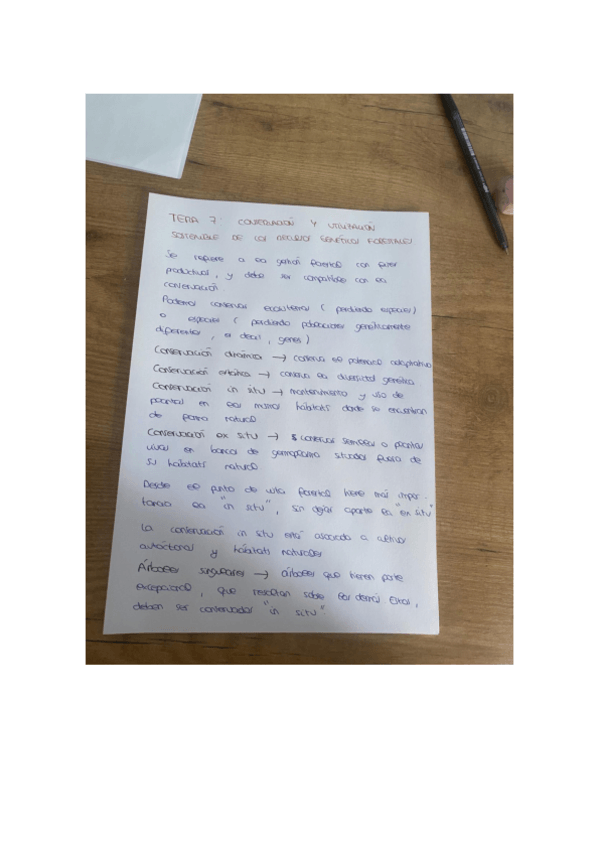 TEMA 7: CONSERVACIÓN Y UTILIZACIÓN
SOSTENIBLE DE LOS RECURSOS GENÉTICOS FORESTALES
Se refiere a la gestión forestal con fines
productivos, y debe ser compatible con la
conservación
Podemos conservar ecosistemas (perdiendo especies)
o especies (perdiendo poblaciones genéticamente
diferentes, es decir, genes)
Conservación dinámica → conserva el potencial adaptativo
Conservación estática → conserva la diversidad genética
Conservación in situ → mantenimiento y uso de
plantas en los mismos hábitats donde se encuentran
de forma natural
Conservación ex situ → conservar semillas o plantas
vivas en bancos de germoplasma situados fuera de
su hábitats natural
Desde el punto de vista forestal tiene más impor-
tancia la "in situ", sin dejar aparte la "ex situ"
La conservación in situ está asociada a cultivos
autóctonos y hábitats naturales
Árboles singulares → árboles que tienen porte
excepcional, que resaltan sobre los demás. Estos,
deben ser conservados "in situ".